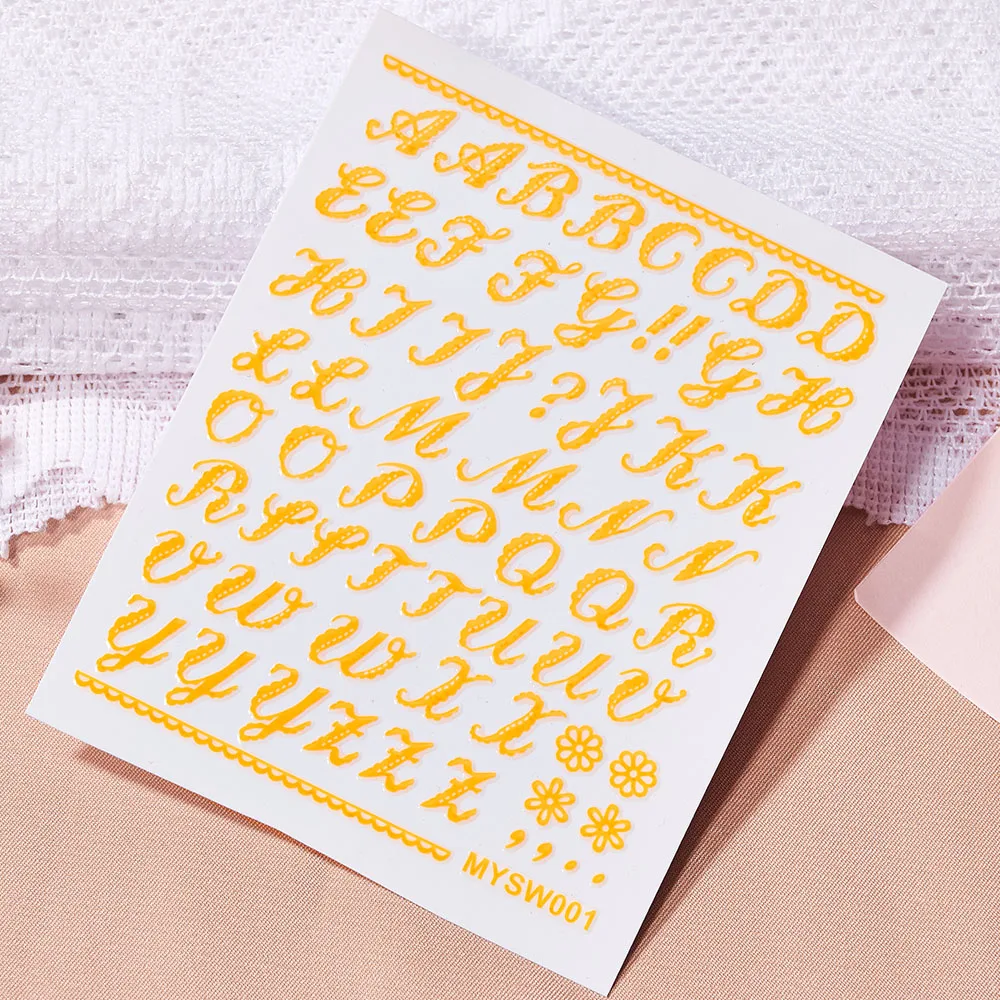 A A B B C C D D
E E F F G !! G H
H I I J ? J K K
L L M M N N
O O P P Q Q R
R S S T T U U V
V W W X X
Y Y Y Z Z Z , , . .
MYSW001